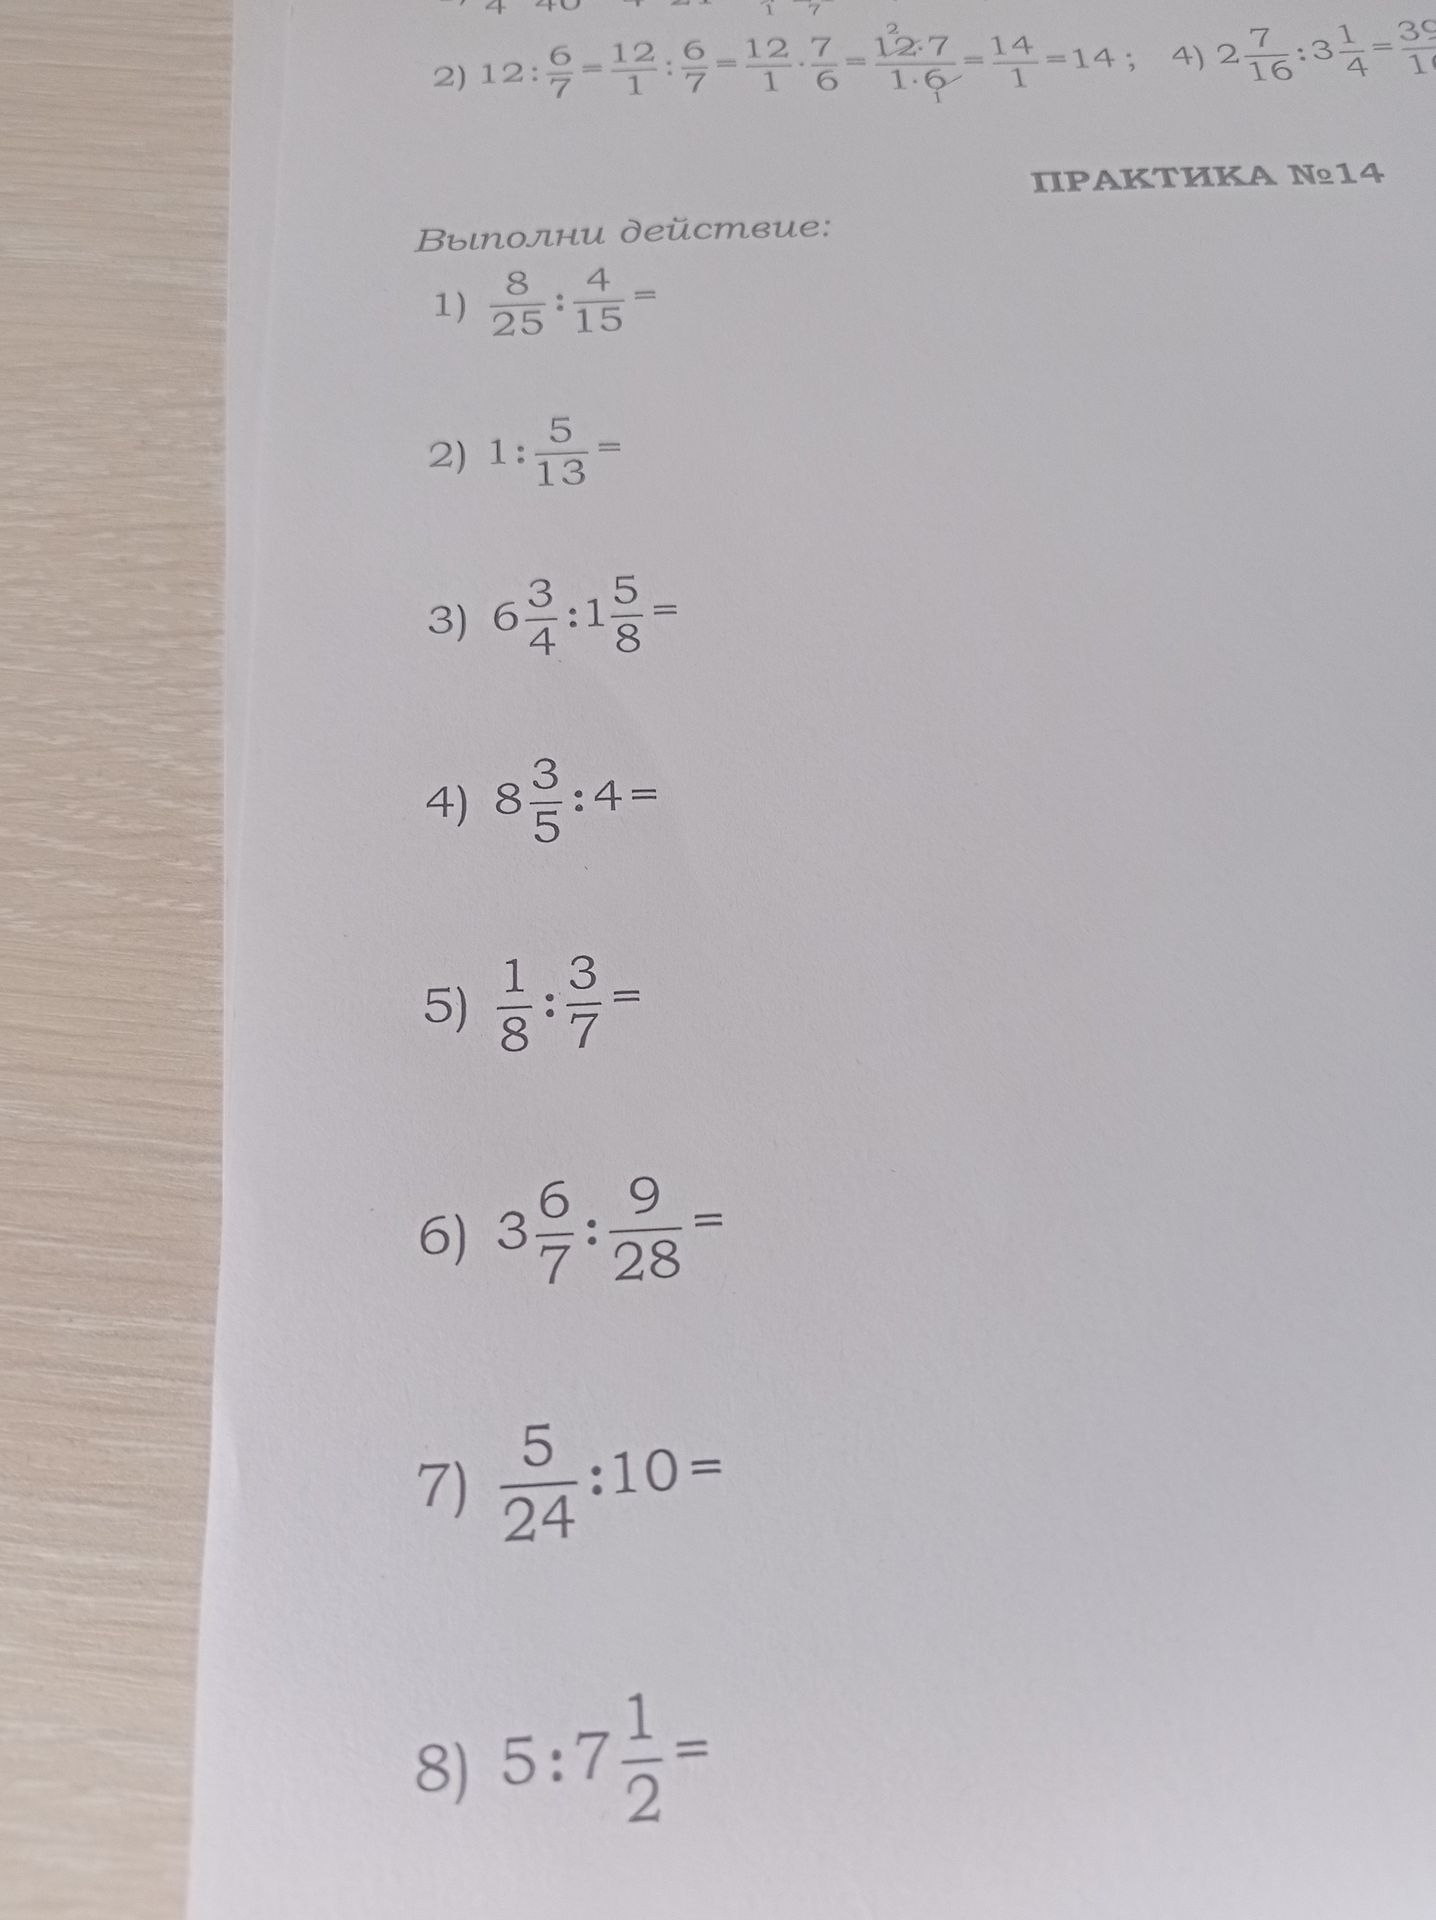 2) 12 : 6/7 = 12/1 : 6/7 = 12/1 · 7/6 = 12·7/1·6 = 14/1 = 14 ; 4) 2 7/16 : 3 1/4 =
ПРАКТИКА №14
Выполни действие:
1) 8/25 : 4/15 =
2) 1 : 5/13 =
3) 6 3/4 : 1 5/8 =
4) 8 3/5 : 4 =
5) 1/8 : 3/7 =
6) 3 6/7 : 9/28 =
7) 5/24 : 10 =
8) 5 : 7 1/2 =